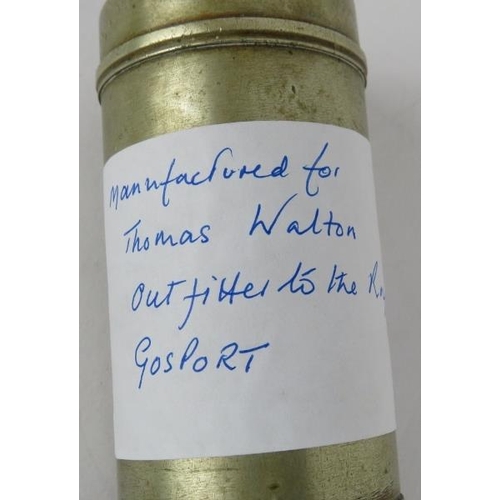 Manufactured for
Thomas Walton
Outfitter to the
GOSPORT